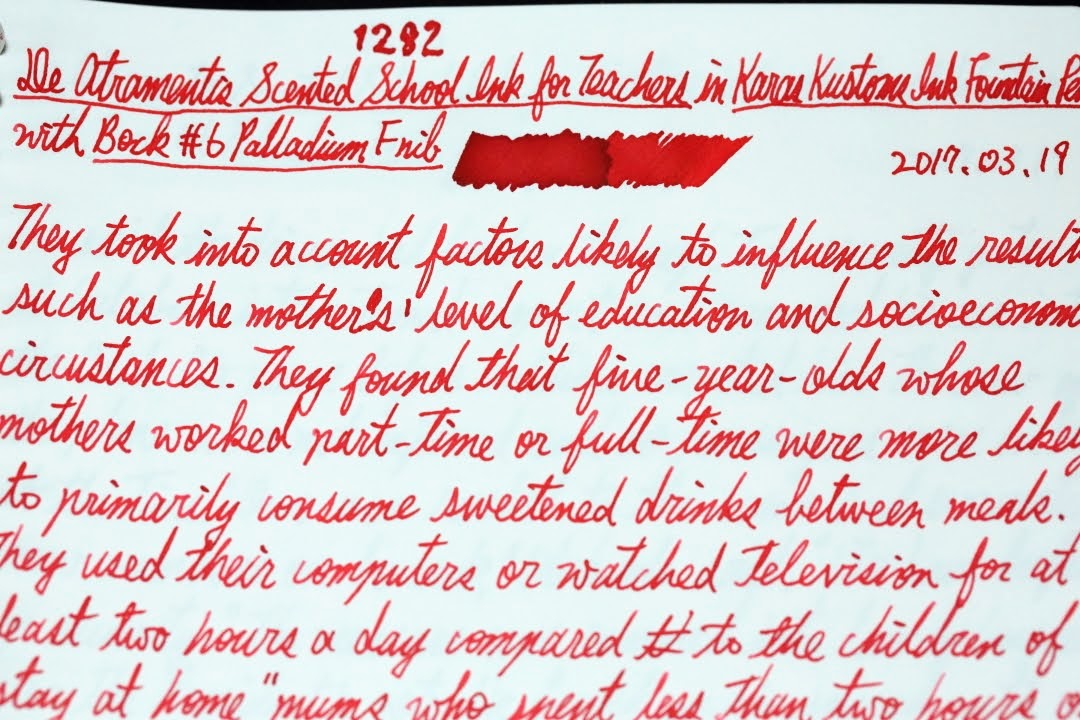 1282
De Atramentis Scented School Ink for Teachers in Karas Kustoms Ink Fountain Pe
with Bock #6 Palladium F nib
2017.03.19
They took into account factors likely to influence the result
such as the mother's' level of education and socioeconom
circustances. They found that five-year-olds whose
mothers worked part-time or full-time were more likely
to primarily consume sweetened drinks between meals.
They used their computers or watched television for at
least two hours a day compared to the children of
stay at home "mums who spent less than two hours o